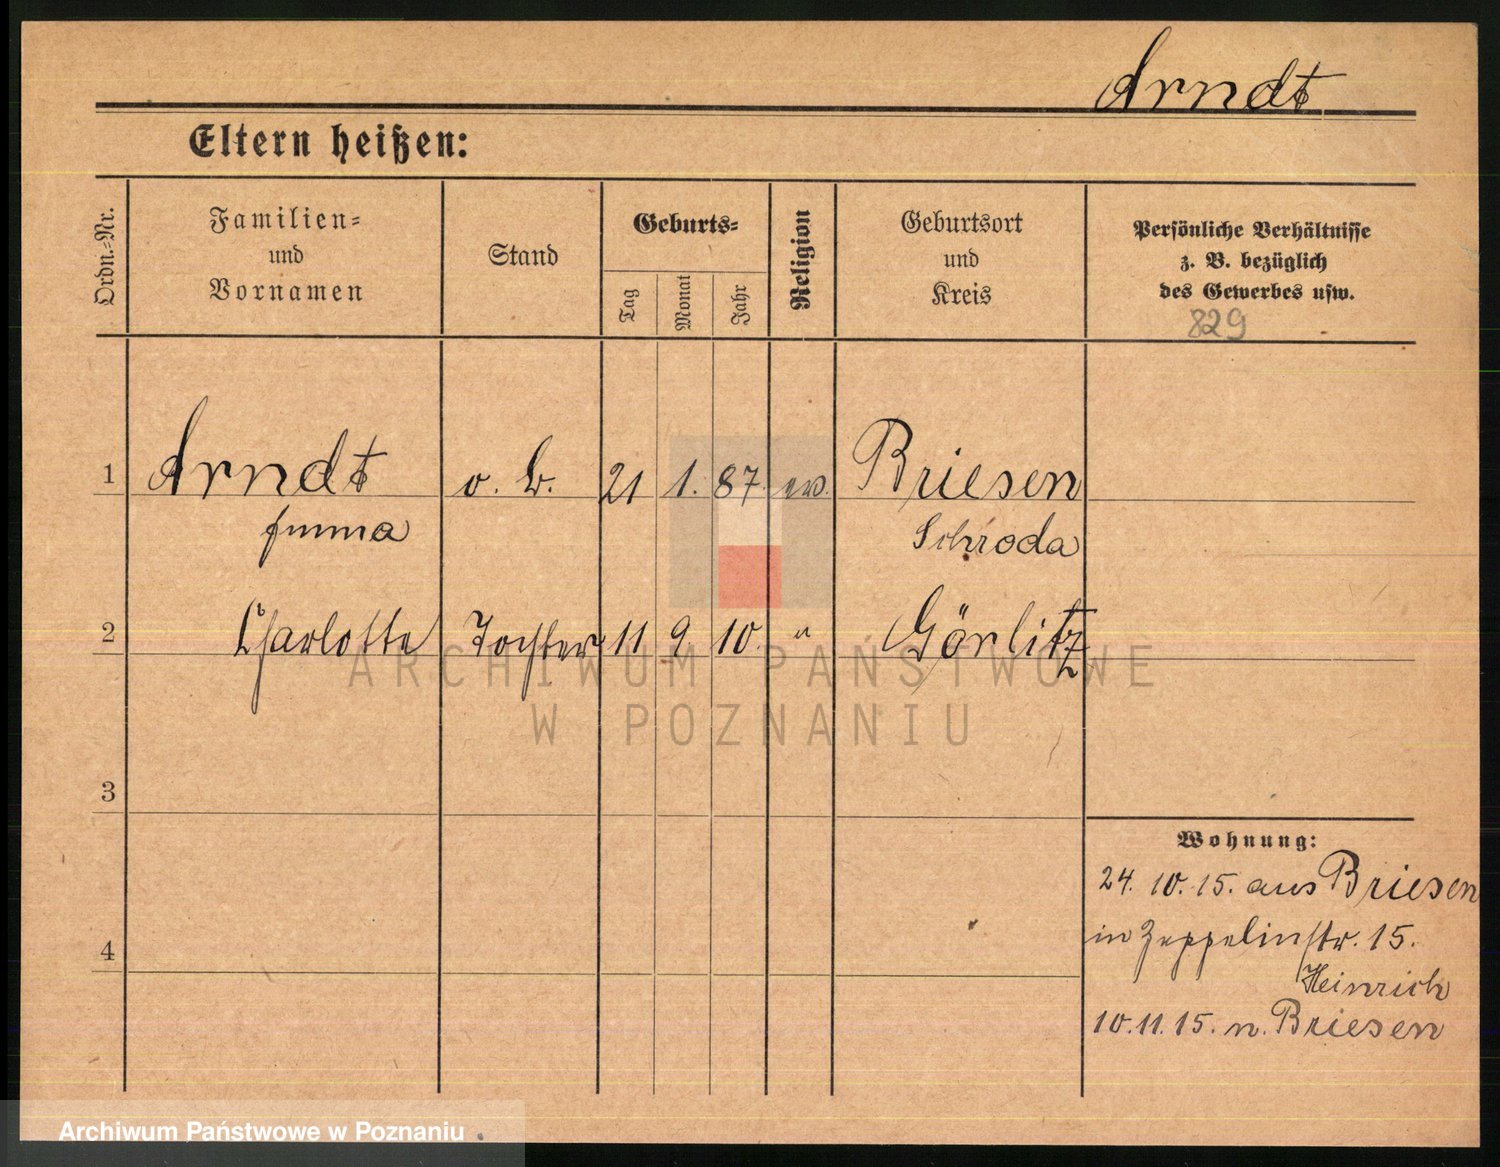 Arndt
Eltern heißen:
Ordn.-Nr.
Familien-
und
Vornamen
Stand
Geburts-
Tag
Monat
Jahr
Religion
Geburtsort
und
Kreis
Persönliche Verhältnisse
z. B. bezüglich
des Gewerbes usw.
829
1 Arndt o. B. 21 1. 87. ev. Briesen
Emma Schroda
2 Charlotte Tochter 11 9. 10. " Görlitz
ARCHIWUM PAŃSTWOWE
W POZNANIU
3
Wohnung:
24. 10. 15. aus Briesen
4 in Zeppelinstr. 15.
Heinrich
10. 11. 15. n. Briesen
Archiwum Państwowe w Poznaniu